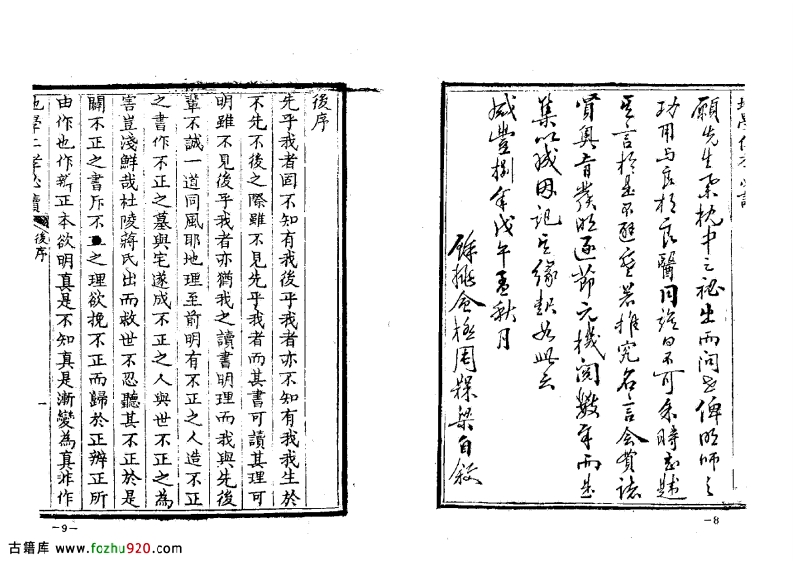 願先生棗枕中之祕出而問世俾明師之
功用與良相良醫同途曰不可余時志趑
其言於是不避愚若推究名言會賞誌
實奧旨發明逐節元機閱數年而甚
集以成因記其緣起如此云
咸豐捌年戊午孟秋月
餘姚會極周梁自敘
-8
後序
先乎我者固不知有我後乎我者亦不知有我我生於
不先不後之際雖不見先乎我者而其書可讀其理可
明雖不見後乎我者亦猶我之讀書明理而我與先後
輩不誠一道同風耶地理至前明有不正之人造不正
之書作不正之墓與宅遂成不正之人與世不正之為
害豈淺鮮哉杜陵蔣氏出而救世不忍聽其不正於是
闢不正之書斥不之理欲挽不正而歸於正辨正所
由作也作辨正本欲明真是不知真是漸變為真非作
後序
一
-9-
古籍库 www.fozhu920.com